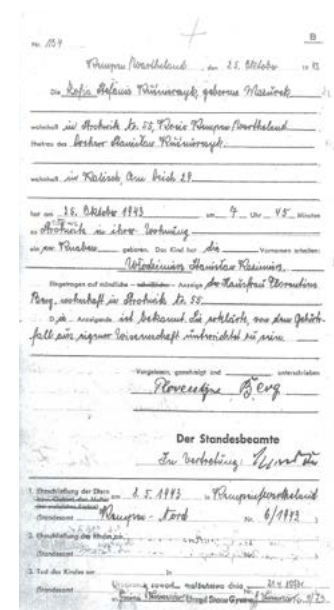 B
Nr. 154
Kempen/Wartheland, den 25. Oktober 19 43
Die Zofia Stefania Kuśnierczyk, geborene Mazurek
wohnhaft in Strohwik Nr. 55, Kreis Kempen/Wartheland
Ehefrau des Stanislaw Kuśnierczyk.
wohnhaft in Kalisch, Am
hat am 25. Oktober 1943 um 7 Uhr 45 Minuten
zu Strohwik in ihrer Wohnung
einen Knaben geboren. Das Kind hat die Vornamen erhalten:
Stanislaw Kazimierz.
Eingetragen auf mündliche schriftliche Anzeige der Hausfrau Florentine
Berg, wohnhaft in Strohwik Nr. 55.
Die Anzeigende ist bekannt. Sie erklärte, von dem Geburts-
fall aus eigener Wissenschaft unterrichtet zu sein.
Vorgelesen, genehmigt und unterschrieben
Florentyne Berg
Der Standesbeamte
In Vertretung:
1. Eheschließung der Eltern am 2.5.1943 in Kempen/Wartheland
(Standesamt Kempen-Nord Nr. 6/1943)
2. Eheschließung des Kindes am
(Standesamt
3. Tod des Kindes am in
(Standesamt